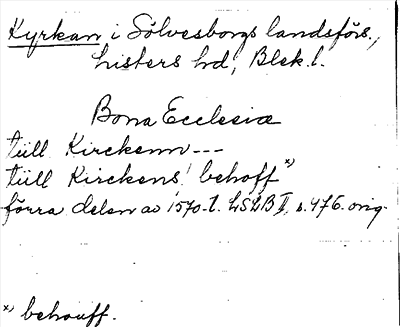 Kyrkan i Sölvesborgs landsförs.,
Listers hd, Blek.l.
Bona Ecclesia
tüll Kirckenn ---
tüll Kirckens behoff *)
förra delen av 1570-t. LSLB II, s. 476. orig.
*) behouff.